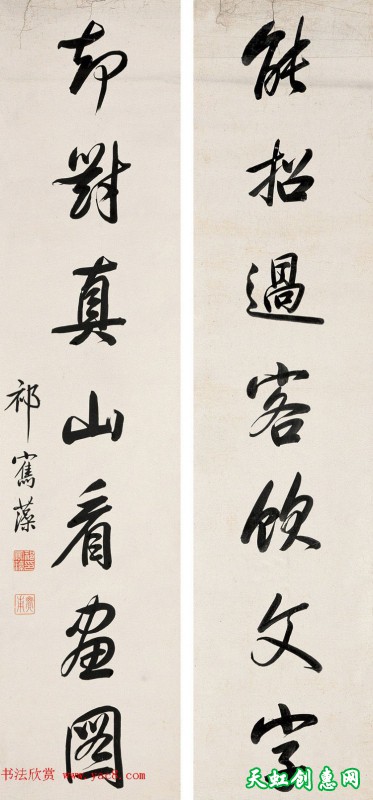 能招過客飲文字
却對真山看畫圖
祁寯藻
书法欣赏 www.yac8.com
天虹创惠网